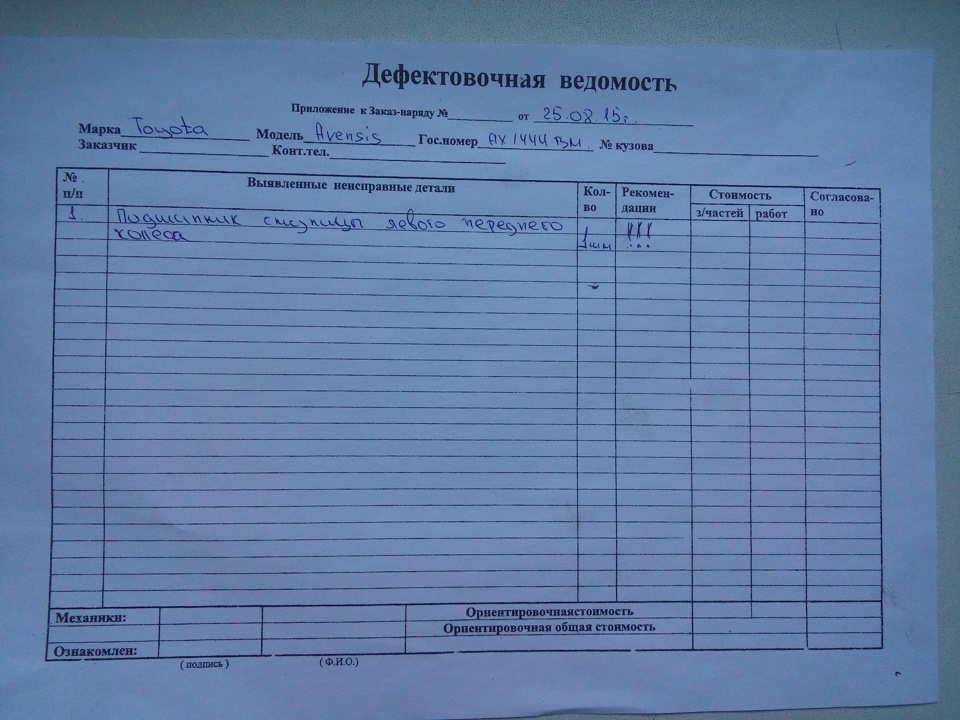 Дефектовочная ведомость
Приложение к Заказ-наряду №__________ от 25.08.15г.
Марка Toyota Модель Avensis Гос.номер АХ 1444 ВМ № кузова
Заказчик Конт.тел.
№ п/п Выявленные неисправные детали Кол-во Рекомен-дации Стоимость з/частей работ Согласова-но
1. Подшипник ступицы левого переднего
колеса 1 шт !!!
Механики: Ориентировочнаястоимость
Ориентировочная общая стоимость
Ознакомлен:
( подпись ) ( Ф.И.О.)